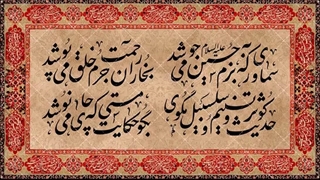 سماوری که به بزم حسین علیه‌السلام می جوشد
بخار رحمت آن جرم خلق می پوشد
حدیث کوثر و تسنیم و سلسبیل مگوی
بگو حکایت مستی که چای می نوشد